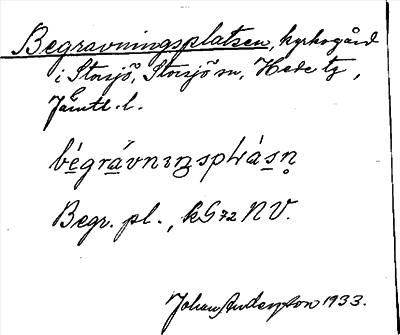 Begravningsplatsen, kyrkogård
i Storsjö, Storsjö sn, Hede tg,
Jämtl. l.
bégrávnıŋsplásn̥
Begr. pl., kS 72 NV.
Johan Anderson 1933.